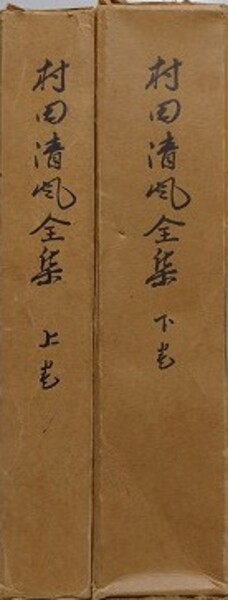 村田清風全集 上巻
村田清風全集 下巻